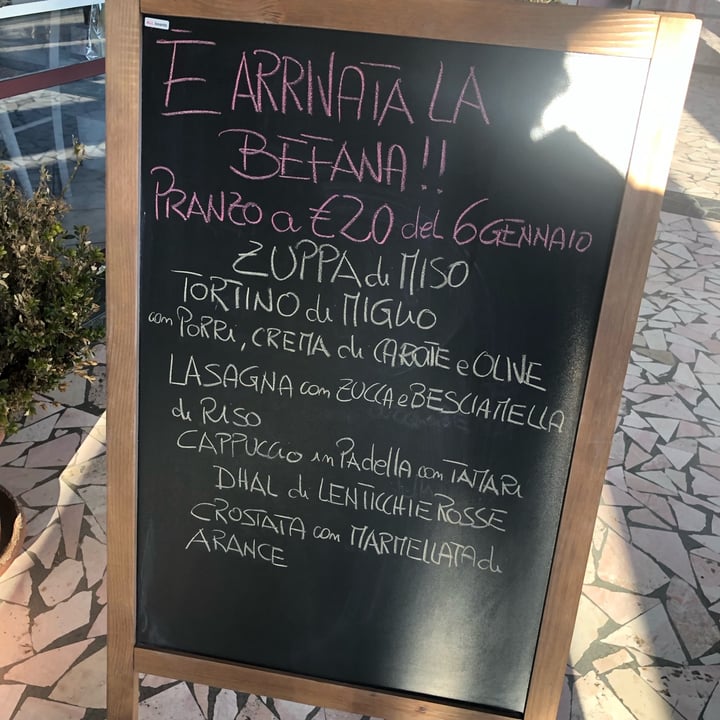 È ARRIVATA LA
BEFANA!!
PRANZO a €20 del 6 GENNAIO
ZUPPA di MISO
TORTINO di MIGLIO
con PORRI, CREMA di CAROTE e OLIVE
LASAGNA con ZUCCA e BESCIAMELLA
di RISO
CAPPUCCIO in PADELLA con TAMARI
DHAL di LENTICCHIE ROSSE
CROSTATA con MARMELLATA di
ARANCE